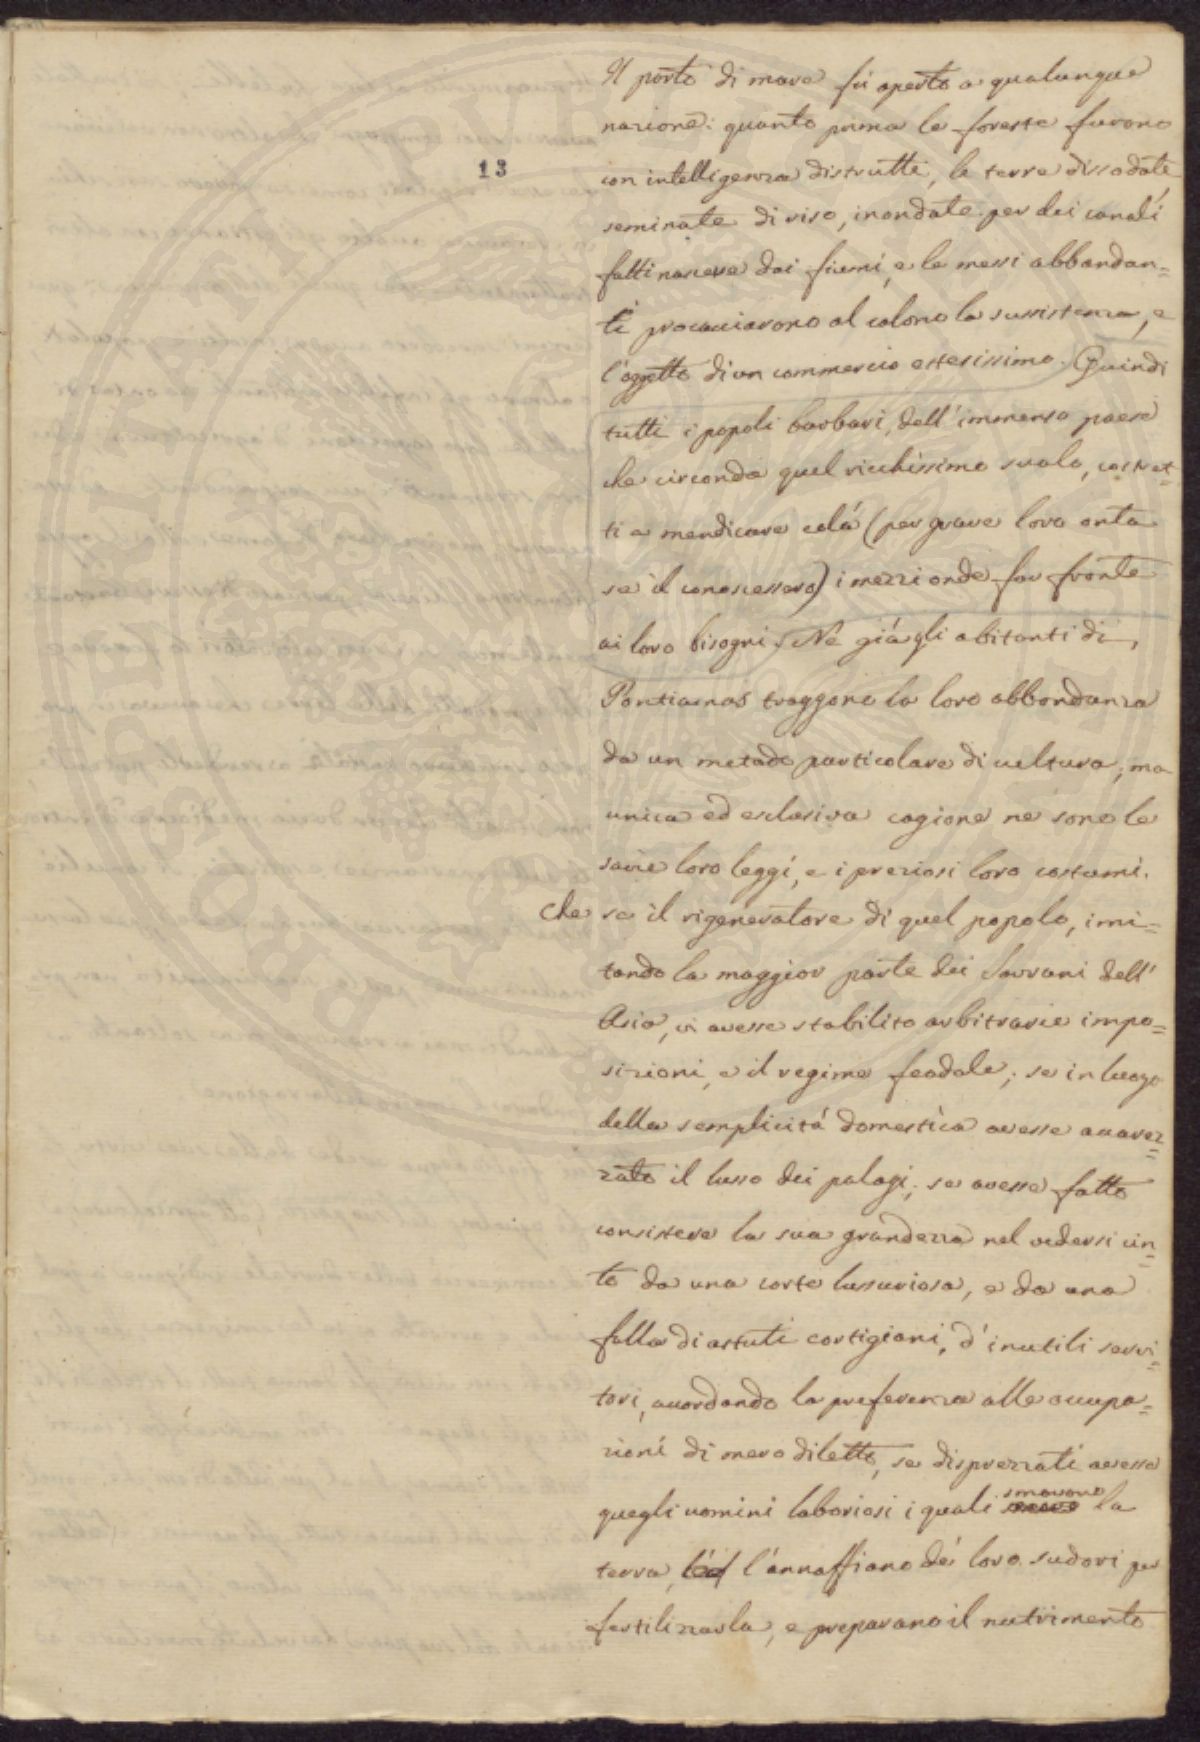 13
Il porto di mare fù aperto a qualunque
nazione: quanto prima le foreste furono
con intelligenza distrutte, le terre dissodate
seminate di riso, inondate per dei canali
fatti nascere dai fiumi, e le messi abbondan=
ti procacciarono al colono la sussistenza, e
l'oggetto di un commercio estesissimo. Quindi
tutti i popoli barbari, dell'immenso paese
che circonda quel ricchissimo suolo, costret=
ti a mendicare colá (per grave loro onta
se il conoscessero) i mezzi onde far fronte
ai loro bisogni. Ne giá gli abitanti di
Pontiamas traggono la loro abbondanza
da un metodo particolare di cultura, ma
unica ed esclusiva cagione ne sono le
savie loro leggi, e i preziosi loro costumi.
Che se il rigeneratore di quel popolo, imi=
tando la maggior parte dei Sovrani dell'
Asia, vi avesse stabilito arbitrarie impo=
sizioni, e il regime feodale; se in luogo
della semplicitá domestica avesse avvez=
zato il lusso dei palagi; se avesse fatto
consistere la sua grandezza nel vedersi cin=
to da una corte lussuriosa, e da una
folla di astuti cortigiani, d'inutili servi=
tori, accordando la preferenza alle occupa=
zioni di mero diletto, se disprezzati avesse
quegli uomini laboriosi i quali smovono la
terra, l'annaffiano dei loro sudori per
fertilizzarla, e preparano il nutrimento